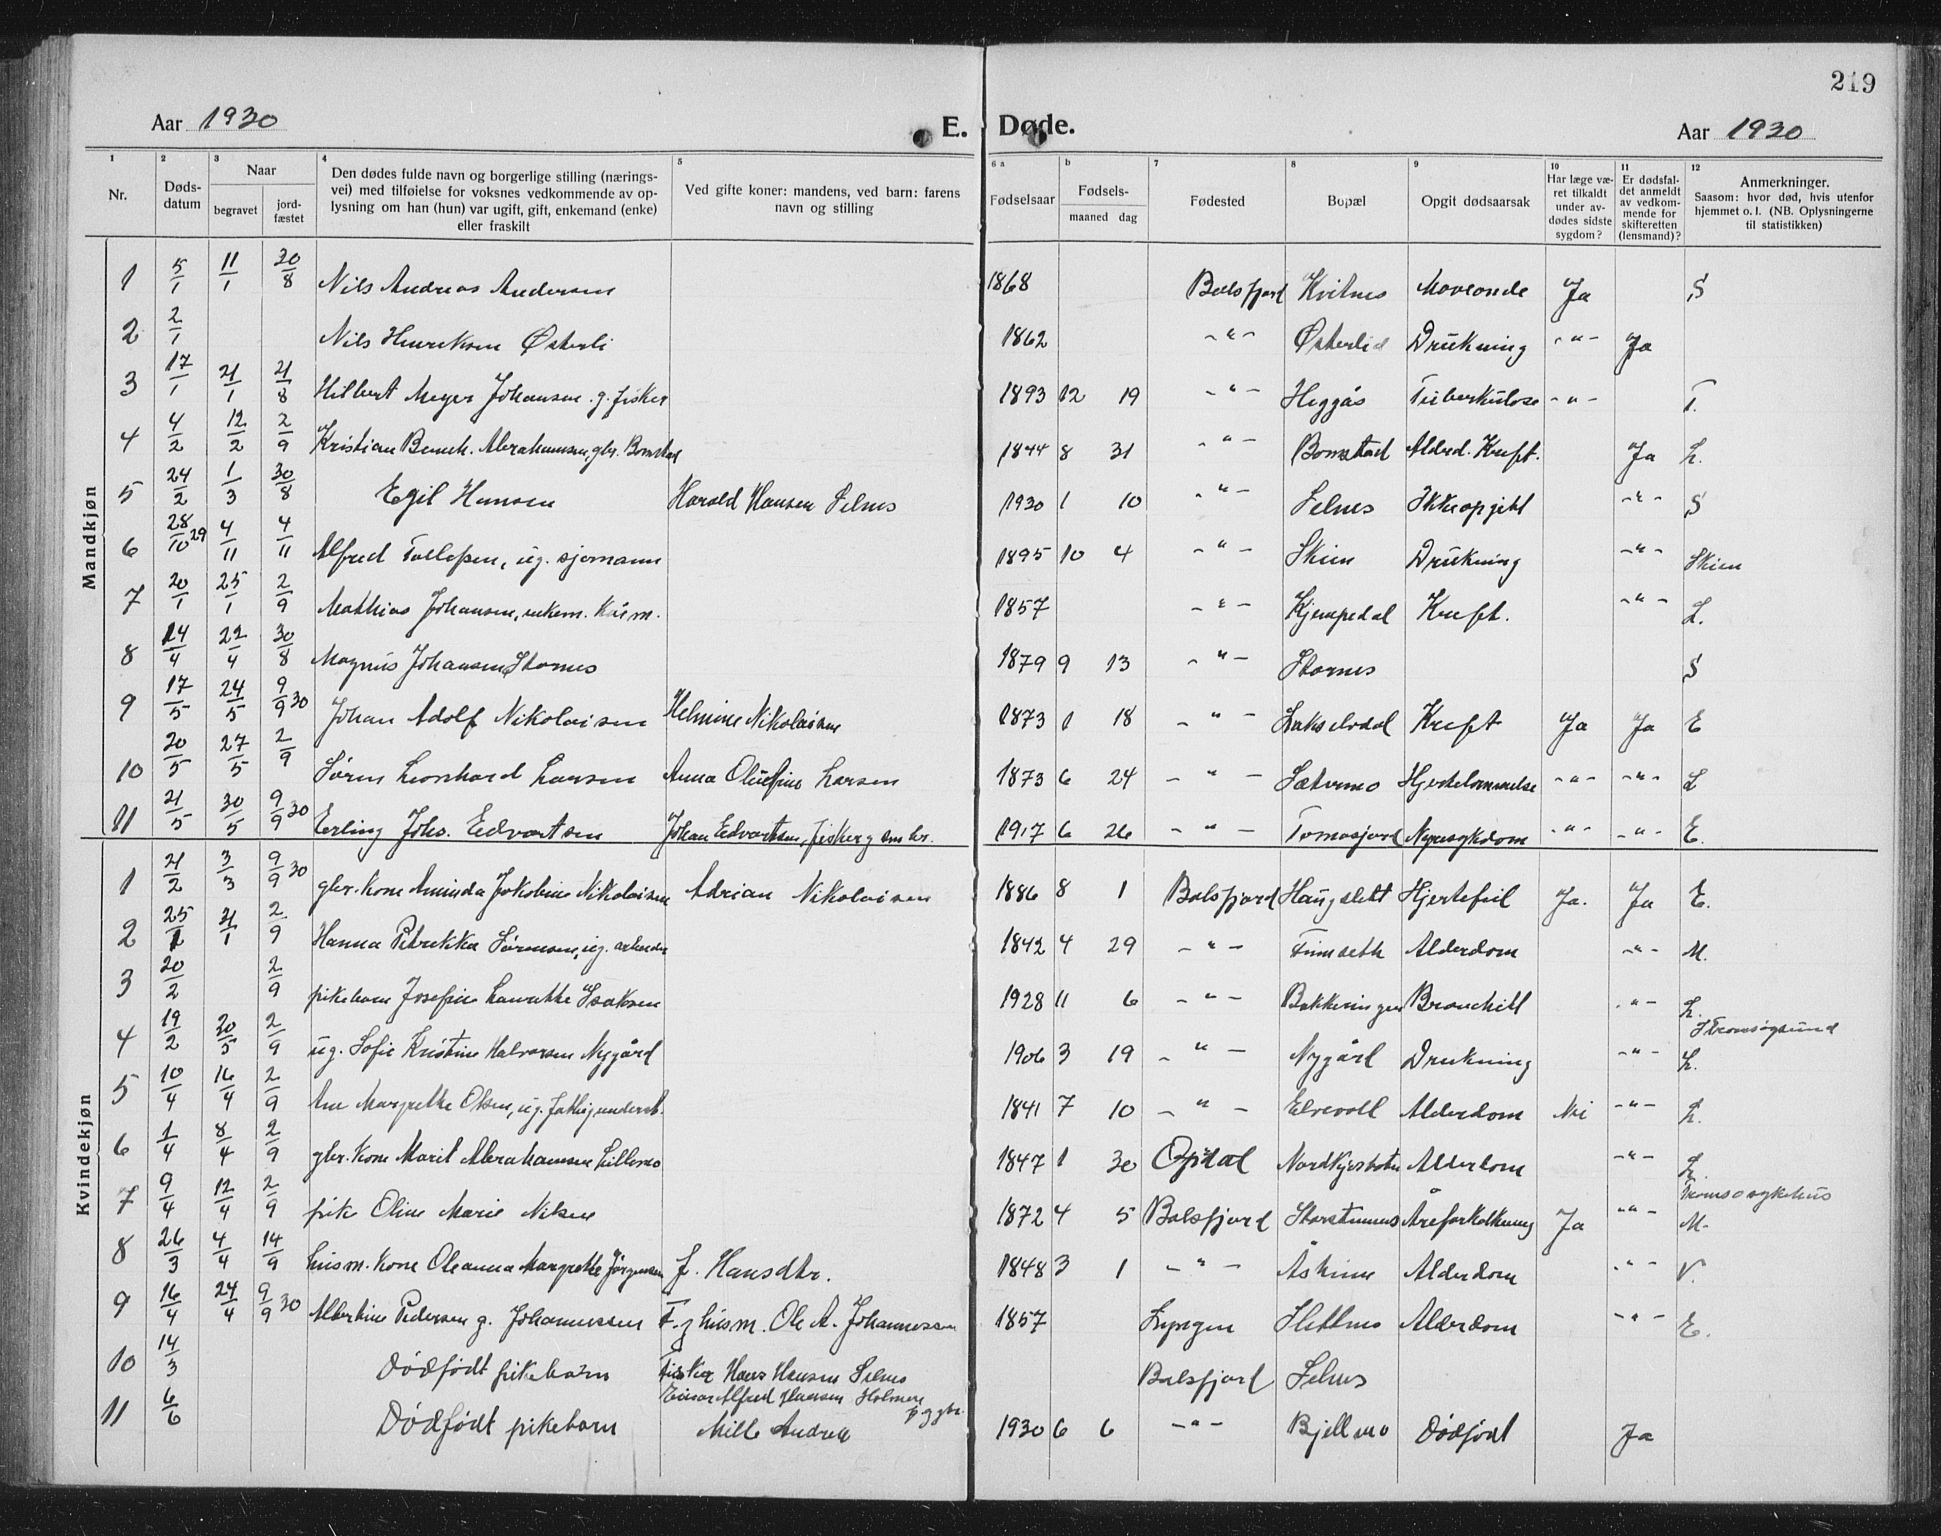 219
Aar 1930 E. Døde. Aar 1930
1 2 3 4 5 6 a b 7 8 9 10 11 12
Nr. Døds-datum Naar begravet jord-fæstet Den dødes fulde navn og borgerlige stilling (nærings-vei) med tilføielse for voksnes vedkommende av op-lysning om han (hun) var ugift, gift, enkemand (enke) eller fraskilt Ved gifte koner: mandens, ved barn: farens navn og stilling Fødselsaar Fødsels- maaned dag Fødested Bopæl Opgit dødsaarsak Har læge væ-ret tilkaldt under av-dødes sidste sygdom? Er dødsfal-det anmeldt av vedkom-mende for skifteretten (lensmand)? Anmerkninger. Saasom: hvor død, hvis utenfor hjemmet o. l. (NB. Oplysningerne til statistikken)
Mandkjøn
1 5/1 11/1 30/8 Nils Andreas Andersen 1868 Balsfjord Kvitnes Ja S
2 2/1 Nils Henriksen Østerli 1862 -"- Østerlid Drukning -"- Ja
3 17/1 21/1 21/8 Hilbert Meyer Johansen. g. fisker 1893 12 19 -"- Heggås Tuberkulose -"- T.
4 4/2 12/2 2/9 Kristian Abrahamsen, gbr. Bomstad 1844 8 31 -"- Bomstad Alderd. Kreft. Ja L.
5 24/2 1/3 30/8 Egil Hansen Harald Hansen Selnes 1930 1 10 -"- Selnes Ikke opgitt -"- S
6 28/10 29 4/11 4/11 Alfred Tollefsen, ug. sjømann 1895 10 4 -"- Skien Drukning -"- Skien
7 20/1 25/1 2/9 Mathias Johansen, enkem. 1857 -"- Kjempedal Kreft. -"- L.
8 14/4 22/4 30/8 Magnus Johansen Stornes 1879 9 13 -"- Stornes S
9 17/5 24/5 9/9 30 Johan Adolf Nikolaisen Helmine Nikolaisen 1873 1 18 -"- Lakselvdal Kreft Ja Ja E
10 20/5 27/5 2/9 Søren Leonhard Larsen Anna Olufine Larsen 1873 6 24 -"- Sætermo Hjertelammelse -"- -"- L
11 21/5 30/5 9/9 30 Erling Johs. Edvartsen Johan Edvartsen, fisker g 1917 6 26 -"- Tomasjord Nyresykdom -"- -"- E.
Kvindekjøn
1 21/2 3/3 9/9 30 gbr. kone Aminda Jakobine Nikolaisen Adrian Nikolaisen 1886 8 1 Balsfjord Haugslett Hjertefeil Ja. Ja E.
2 25/1 31/1 2/9 Hanna Petrikka Sørensen, ug. arbeider 1842 4 29 -"- Finnseth Alderdom -"- M.
3 20/2 2/9 pikebarn Josefine Isaksen 1928 11 6 -"- Bronchitt -"- L.
4 19/2 20/5 2/9 ug. Sofie Kristine Halvorsen Nygård 1906 3 19 -"- Nygård Drukning -"- I Tromsøysund L.
5 10/4 16/4 2/9 Ane Margrethe Olsen, ug. fattigunderst. 1841 7 10 -"- Elvevoll Alderdom Nei -"- L.
6 1/4 8/4 2/9 gbr. kone Marit Abrahamsen Lillemo 1847 1 30 Opdal Nordkjosbotn Alderdom -"- L
7 9/4 12/4 2/9 pike Oline Marie Nilsen 1872 4 5 Balsfjord Storstennes Åreforkalkning Ja -"- Tromsø sykehus M.
8 26/3 4/4 14/9 husm. kone Oleanna Margrethe Jørgensen f. Hansdtr. 1848 3 1 -"- Alderdom -"- V.
9 16/4 24/4 9/9 30 Albertine Pedersen g. Johannessen F. g husm. Ole A. Johannessen 1857 Lyngen Slettnes Alderdom -"- E.
10 14/3 Dødfødt pikebarn Fisker Hans Hansen Selnes Balsfjord Selnes
11 6/6 Dødfødt pikebarn Einar Alfred Hansen Holmen
1930 6 6 -"- Bjellmo Dødfødt Ja